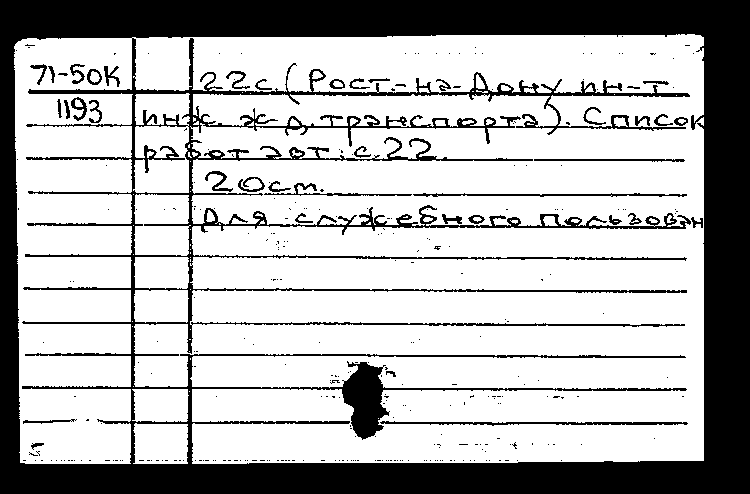 71-50К 22с. (Рост.-на-Дону ин-т
1193 инж. ж-д. транспорта). Список
работ авт.: с.22.
20см.
Для служебного пользован